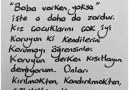 "Baba varken, yoksa"
işte o daha da zordur.
Kız çocuklarını çok iyi
Koruyun ki Kendilerini
Korumayı öğrensinler.
Koruyun derken kısıtlayın
demiyorum. Onları
Kırılmaktan, kandırılmaktan,